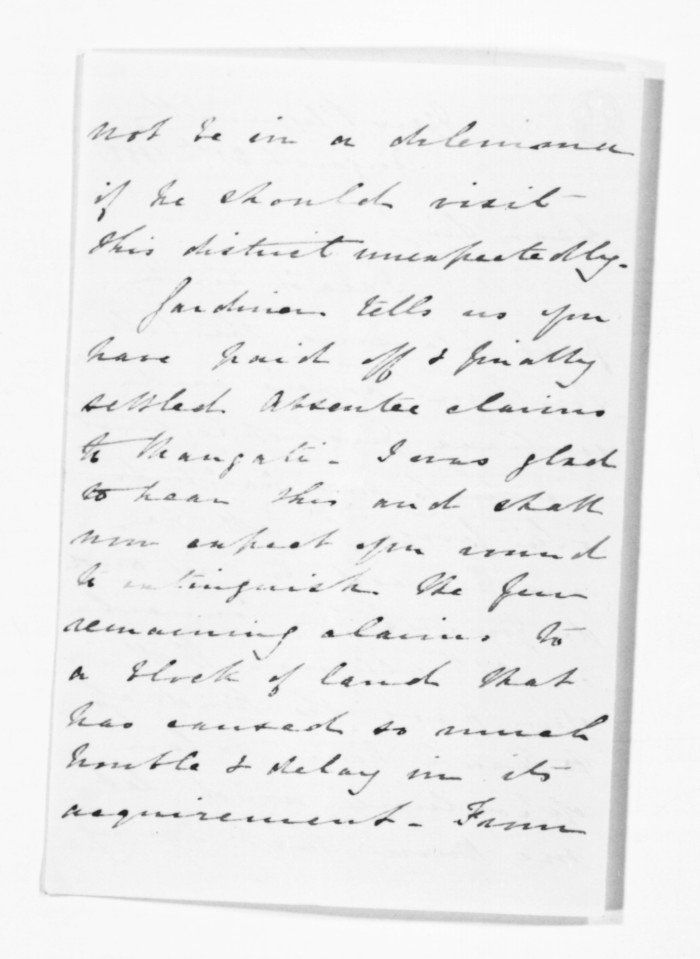 not be in a dilemma
if he should visit
this district unexpectedly.
Gardiner tells us you
have paid off & finally
settled Absentee claims
to Maugati - I was glad
to hear this and shall
now expect you round
to extinguish the few
remaining claims to
a block of land that
has caused so much
trouble & delay in its
acquirement - From